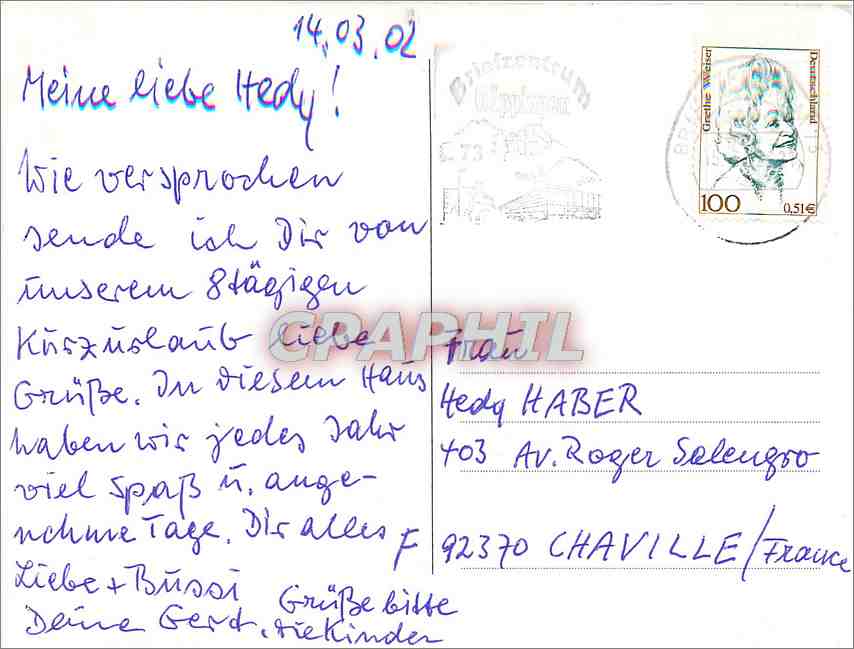 14.03.02
Meine liebe Hedy!
Wie versprochen
sende ich Dir von
unserem 8tägigen
Kurzurlaub liebe
Grüße. In diesem Haus
haben wir jedes Jahr
viel Spaß u. ange-
nehme Tage. Dir alles
Liebe + Bussi
Deine Gert. Grüße bitte
die Kinder
Briefzentrum
Göppingen
73
Grethe Weiser
Deutschland
100
0,51€
CPAPHIL
Frau
Hedy HABER
403 Av. Roger Salengro
F 92370 CHAVILLE/France